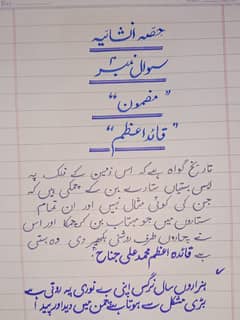 حصہ انشائیہ
سوال نمبر ۳
"مضمون"
"قائد اعظم"
تاریخ گواہ ہے کہ اس زمین کے فلک پہ
ایسی ہستیاں ستارے بن کے چمکی ہیں کہ
جن کی کوئی مثال نہیں اور ان تمام
ستاروں میں جو مہتاب بن کر چمکا اور اس
نے چاروں طرف روشنی بکھیر دی وہ ہستی
ہے قائد اعظم محمد علی جناح
ہزاروں سال نرگس اپنی بے نوری پہ روتی ہے
بڑی مشکل سے ہوتا ہے چمن میں دیدہ ور پیدا